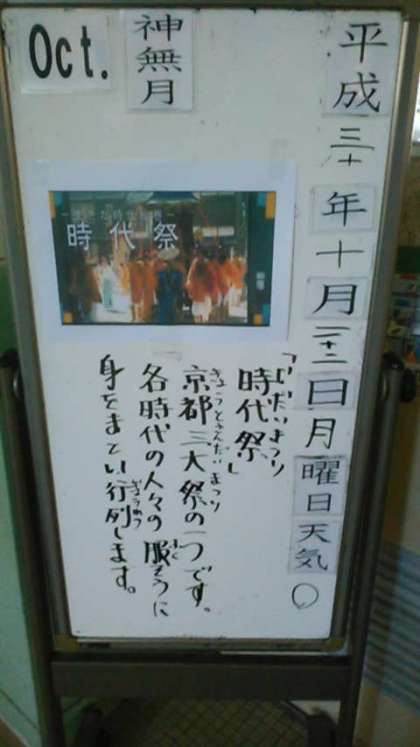 平成三十年十月二十二日月曜日天気○
神無月
Oct.
時代祭
じだいまつり
「時代祭」
きょうとさんだいまつり
京都三大祭の一つです。
ふく
各時代の人々の服そうに
ぎょうれつ
身をまとい行列します。